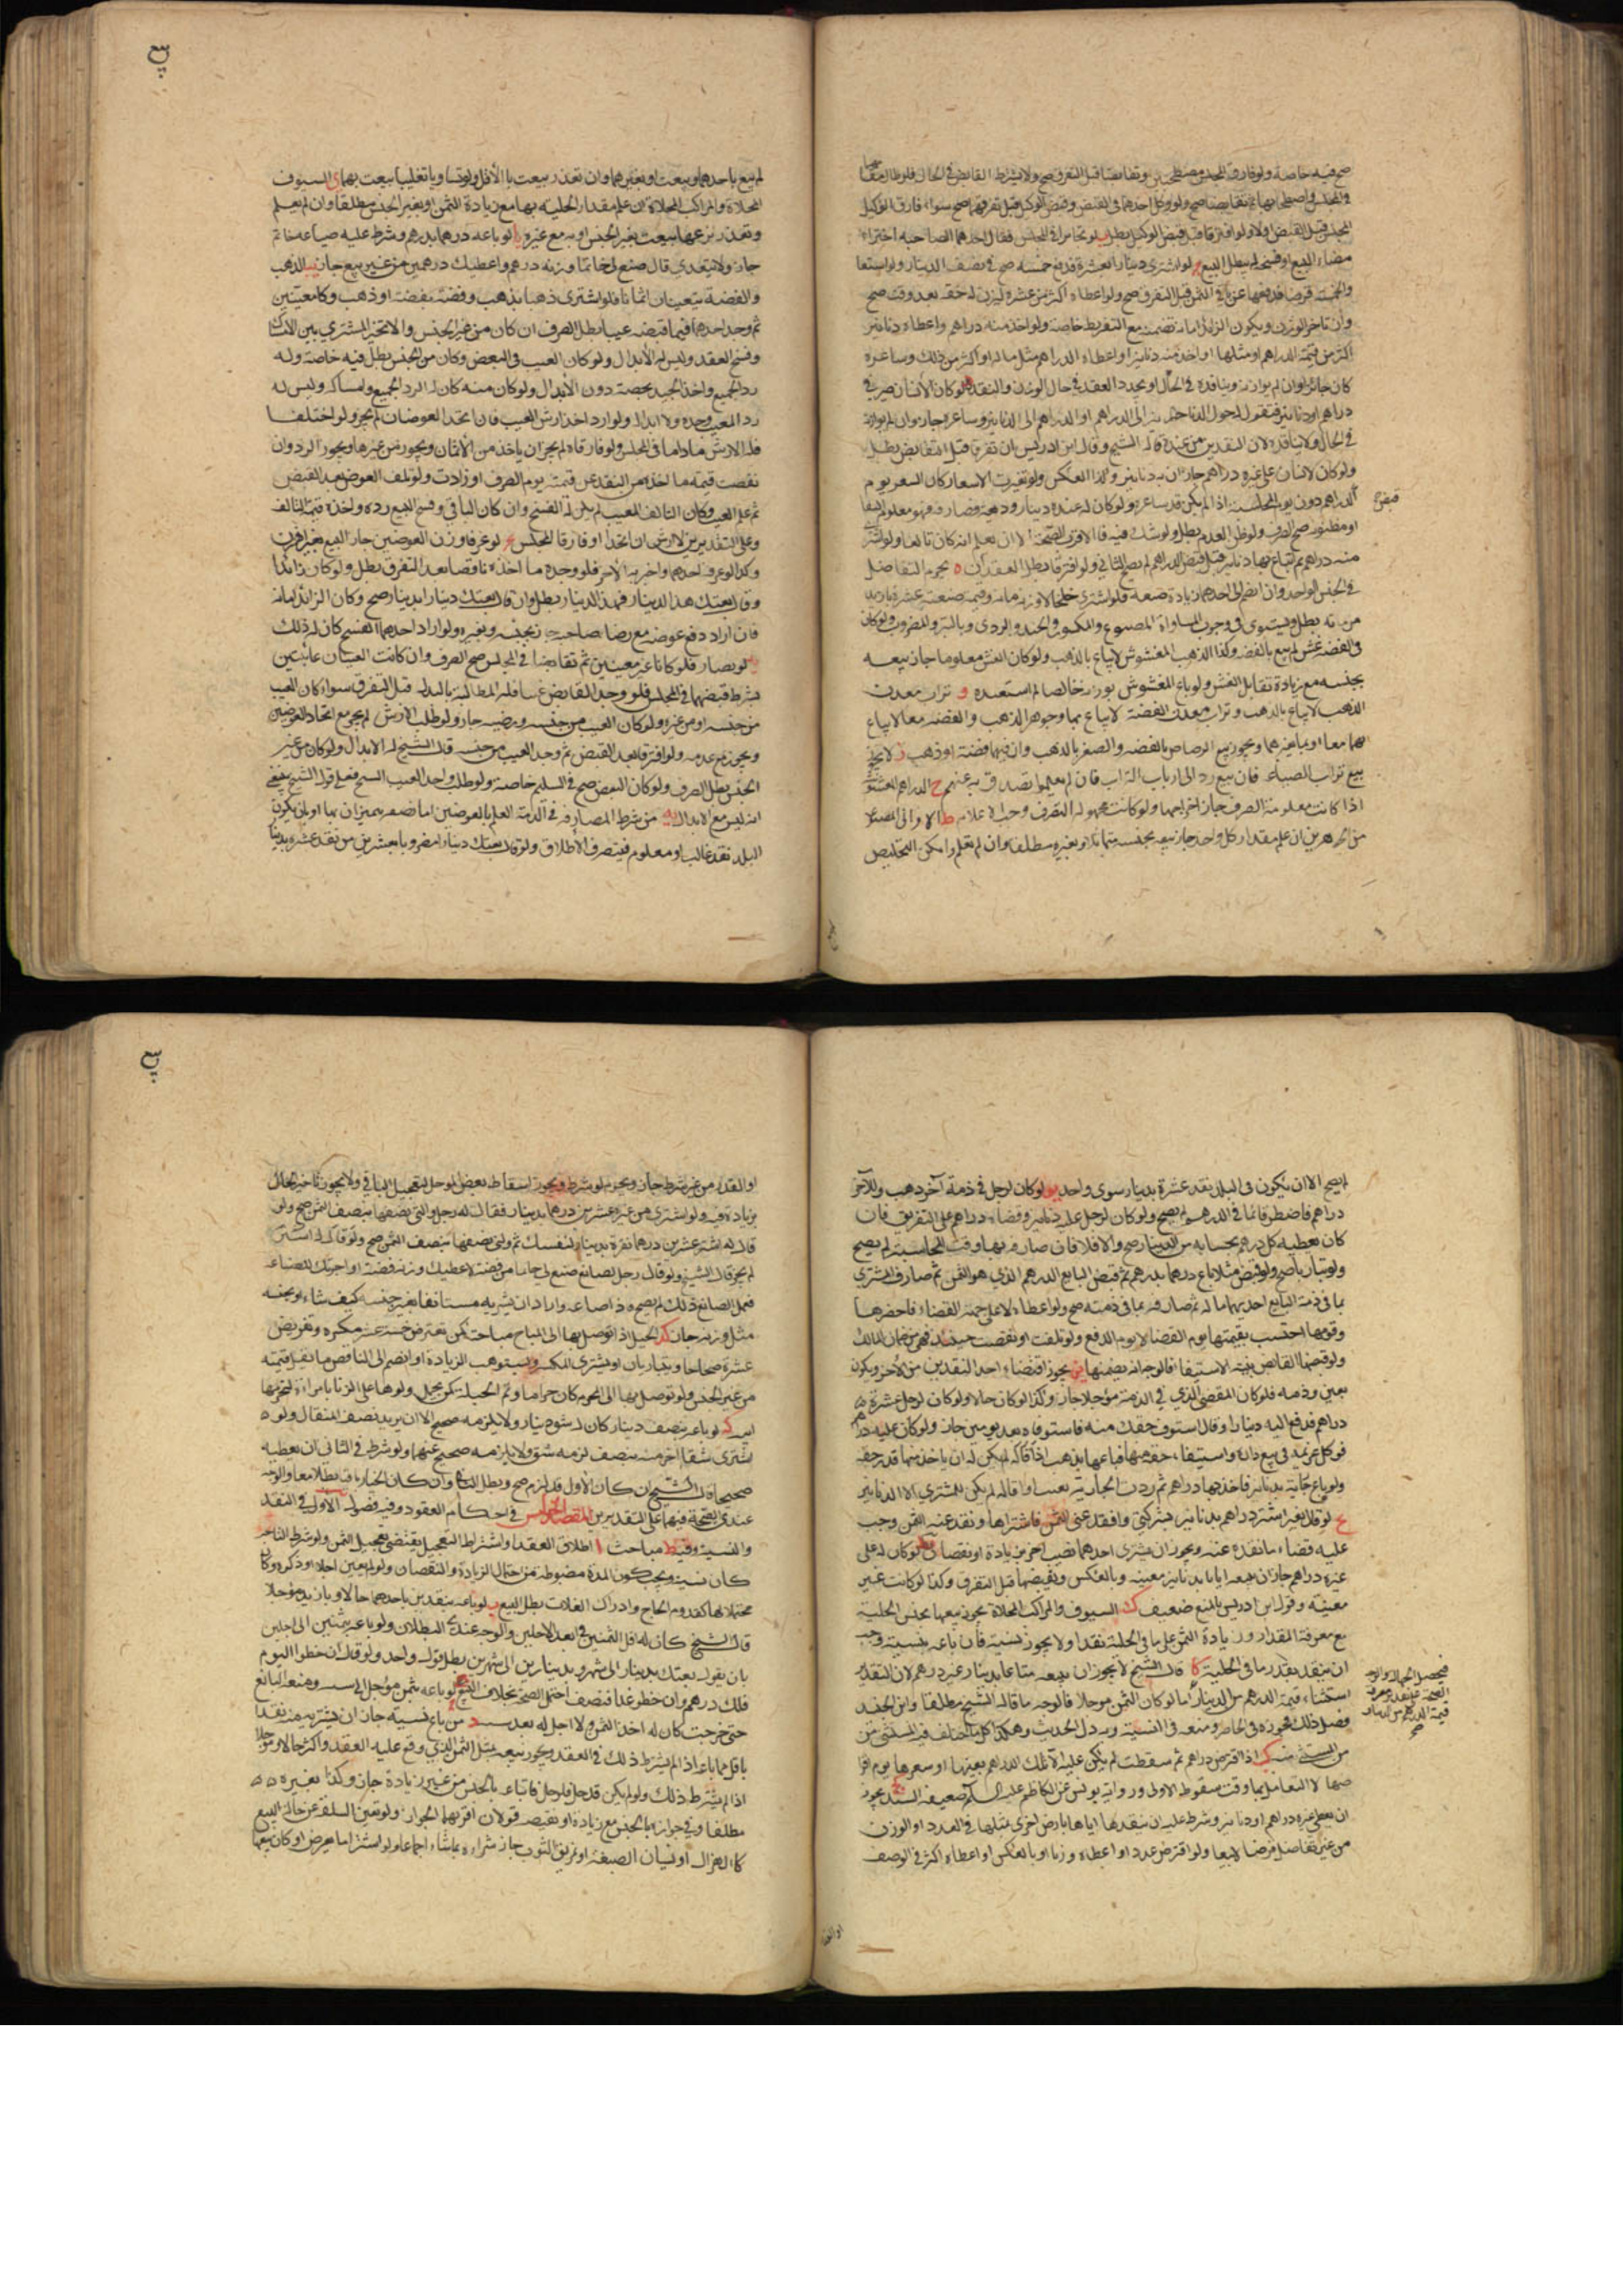 صح فيه خاصة ولو فارقا المجلس مصطحبين وتقابضا قبل التفرق صح ولا يشترط التقابض في الحال فلو طال مقامهما
في المجلس واصطحابهما ثم تقابضا صح ولو وكل احدهما في القبض وقبض الوكيل قبل تفرقهما صح سواء فارق الوكيل
المجلس قبل القبض اولا ولو افترقا قبل قبض الوكيل بطل ب لو تخايرا في المجلس فقال احدهما لصاحبه اخترت
امضاء البيع او فسخه لم يبطل البيع ج لو اشترى دينارا بعشرة فدفع خمسة صح في نصف الدينار ولو استعاد
والخمسة قرضا فدفعها عن باقي الثمن قبل التفرق صح ولو اعطاه اكثر من عشرة ليزن له حقه بعد وقت صح
وان تأخر الوزن ويكون الزائد امانة تضمن مع التفريط خاصة ولو اخذ منه دراهم واعطاه دنانير
اكثر من قيمة الدراهم او مثلها او اخذ منه دنانير او اعطاه الدراهم مثل ماله او اكثر من ذلك وساعره
كان جائزا وان لم يوازنه ويناقده في الحال او يجدد العقد في حال الوزن والنقد د لو كان لانسان صيرفي
دراهم او دنانير فيقول له حول الدنانير الى الدراهم او الدراهم الى الدنانير وساعره جاز وان لم يوازنه
في الحال ولا يناقده لان النقدين من عنده قاله الشيخ وقال ابن ادريس ان تفرق قبل التقابض بطل
ولو كان لانسان على غيره دراهم جاز ان به دنانير وكذا العكس ولو تغيرت الاسعار كان السعر يوم
قبض
الدراهم دون يوم المحاسبة اذا لم يكن قد ساعره ولو كان له عنده دينار وديعة فصارفه وهو معلوم البقاء
او مظنونه صح الصرف ولو ظن العدم بطل ولو شك فيه فالاقرب الصحة الا ان يعلم انه كان تالفا ولو اشترى
منه دراهم ثم ابتاع بها دنانير قبل قبض الدراهم لم يصح الثاني ولو افترقا بطل العقدان ه يحرم التفاضل
في الجنس الواحد وان انضم الى احدهما زيادة صنعة فلو اشترى خلخالا وزنه مائة وقيمة صنعته عشرة بازيد
من مائة بطل ويستوى في وجوب المساواة المصنوع والمكسور والجيد والردي وبالتبر والمضروب ولو كان
في الفضة غش لم يبع بالفضة وكذا الذهب المغشوش لا يباع بالذهب ولو كان الغش معلوما جاز بيعه
بجنسه مع زيادة تقابل الغش ولو باع المغشوش بوزنه خالصا لم استبعده و تراب معدن
الذهب لا يباع بالذهب وتراب معدن الفضة لا يباع بها وجوهر الذهب والفضة معا لا يباع
بهما معا او بما غيرهما ويجوز بيع الرصاص بالفضة والصفر بالذهب وان فيهما فضة او ذهب ز لا يجوز
بيع تراب الصياغة فان بيع رد الى ارباب التراب فان لم يعلموا تصدق به عنهم ح الدراهم المغشوشة
اذا كانت معلومة الصرف جاز اخراجها ولو كانت مجهولة الصرف وجب اعلامه ط الاواني المصنوعة
من الجوهرين ان علم مقدار كل واحد جاز بيعه بجنسه متماثلا وبغيره مطلقا وان لم يعلم وامكن التخليص
لم يبع باحدهما وبيعت بهما او بغيرهما وان تعذر بيعت بالاقل ولو تساويا تغليبا بيعت بهما ى السيوف
المحلاة والمراكب المحلاة ان علم مقدار الحلية بها مع زيادة الثمن او بغير الجنس مطلقا وان لم يعلم
وتعذر نزعها بيعت بغير الجنس او به مع غيره يا لو باعه درهما بدرهم وشرط عليه صياغة خاتم
جاز ولا يتعدى قال صنع لي خاتما وزنه درهم واعطيك درهمين من غير بيع جاز يب الذهب
والفضة يتعينان اثمانا فلو اشترى ذهبا بذهب وفضة بفضة او ذهب وكانا معينين
ثم وجد احدهما فيما قبضه عيبا بطل الصرف ان كان من غير الجنس والا تخير المشتري بين الامساك
وفسخ العقد وليس له الابدال ولو كان العيب في البعض وكان من الجنس بطل فيه خاصة وله
رد الجميع واخذ الجيد بحصته دون الابدال ولو كان منه كان له الرد الجميع وامساكه وليس له
رد المعيب وحده ولا ابداله ولو اراد اخذ ارش العيب فان اتحد العوضان لم يجز ولو اختلفا
فله الارش ما داما في المجلس ولو فارقاه لم يجز ان ياخذ من الاثمان ويجوز من غيرها ويجوز الرد وان
نقصت قيمة ما اخذه من النقد عن قيمته يوم الصرف او زادت ولو تلف العوض بعد القبض
ثم علم العيب وكان التالف المعيب لم يكن له الفسخ وان كان الباقي وفسخ البيع رده واخذ قيمة التالف
وعلى التقديرين لا ارش ان اتحدا او فارقا المجلس يج لو عرفا وزن العوضين جاز البيع بغير وزن
وكذا لو عرف احدهما واخبر به الآخر فلو وجده ما اخذه ناقصا بعد التفرق بطل ولو كان زائدا
وقال بعتك هذا الدينار بهذا الدينار بطل وان قال بعتك دينارا بدينار صح وكان الزائد امانة
فان اراد دفع عوضه مع رضا صاحبه جاز بجنسه وبغيره ولو اراد احدهما الفسخ كان له ذلك
يد لو تصارفا وكانا غير معينين ثم تقابضا في المجلس صح الصرف وان كانت العينان غائبتين
بشرط قبضهما في المجلس فلو وجد القابض عيبا فله المطالبة بالبدل قبل التفرق سواء كان العيب
من جنسه او من غيره ولو كان العيب من جنسه ورضيه جاز ولو طلب الارش لم يجز مع اتحاد العوضين
ويجوز مع عدمه ولو افترقا بعد القبض ثم وجد العيب من جنسه قال الشيخ له الابدال ولو كان من غير
الجنس بطل الصرف ولو كان البعض صح في السليم خاصة ولو طلب واجد العيب الفسخ فعلى قول الشيخ ينبغي
انه ليس مع الابدال يه من شرط المصارفة في الذمة العلم بالعوضين اما بصفة يتميزان بها او بان يكون
البلد نقد غالب او معلوم فينصرف الاطلاق ولو قال بعتك دينارا مضروبا بعشرين من نقد عشرة بدينار
لم يصح الا ان يكون في البلد نقد عشرة بدينار سوى واحد يو لو كان لرجل في ذمة آخر ذهب وللآخر
دراهم فاصطرفا بما في الذمم لم يصح ولو كان لرجل عليه دنانير وقضاه دراهم على التفريق فان
كان يعطيه كل درهم بحسابه من الدينار صح والا فلا فان صارفه بها وقت المحاسبة لم يصح
ولو تبارءا صح ولو قبض مثلا باع درهما بدرهم ثم قبض البايع الدرهم الذي هو الثمن ثم صارف المشتري
بما في ذمة البايع احديهما ماله ثم صارفه بما في ذمته صح ولو اعطاه لا على جهة القضاء فاحضرها
وقومها احتسب بقيمتها يوم القضاء لا يوم الدفع ولو تلفت او نقصت حينئذ فهي من ضمان المالك
ولو قبضها القابض بنية الاستيفاء فالوجه انه يضمنها يز يجوز اقتضاء احد النقدين من الآخر ويكون
بعين وذمة فلو كان المقضي الذي في الذمة مؤجلا جاز وكذا لو كان حالا ولو كان لرجل عشرة
دراهم فدفع اليه دينارا وقال استوف حقك منه فاستوفاه بعد يومين جاز ولو كان عليه دراهم
فوكل غريمه في بيع داره واستيفاء حقه منها فباعها بذهب اذا قاله لم يكن له ان ياخذ منها قدر حقه
ولو باع جارية بدنانير فاخذ بها دراهم ثم ردت الجارية بعيب او اقالة لم يكن للمشتري الا الدنانير
يح لو قال لغيره اشتر دراهم بدنانير بشركتي وانقد عني الثمن فاشتراها ونقد عنه الثمن وجب
عليه قضاء ما نقده عنه ويجوز ان يشتري احدهما نصيب الآخر بزيادة او نقصان يط لو كان له على
غيره دراهم جاز ان يبيعه اياها بدنانير معينة وبالعكس ويقبضها قبل التفرق وكذا لو كانت غير
معينة وقول ابن ادريس بالمنع ضعيف ك السيوف والمراكب المحلاة يجوز بيعها بجنس الحلية
مع معرفة المقدار وزيادة الثمن على ما في الحلية نقدا ولا يجوز نسية فان باعه بنسية وجب
ان ينقد بقدر ما في الحلية كا قال الشيخ لا يجوز ان يبيعه متاعا بدينار غير درهم لان النقد
استثناء قيمة الدرهم من الدينار اما لو كان الثمن موجلا فالوجه ما قاله الشيخ مطلقا وابن الجنيد
فصل ذلك فجوزه في الحاضر ومنعه في النسية وبه دل الحديث وهكذا كل ما تخالف فيه المستثنى من
المستثنى منه كب اذا اقترض دراهم ثم سقطت لم يكن عليه الا تلك الدراهم بعينها او سعرها يوم اقر
ضها لا التعامل بها وقت سقوط الاولى ورواية يونس عن الكاظم عليه السلم ضعيفة السند كج يجوز
ان يعطي غيره دراهم او دنانير وشرط عليه ان ينقدها اياها بارض اخرى بمثلها في العدد او الوزن
من غير تفاضل قرضا لا بيعا ولو اقترض عددا واعطاه وزنا او بالعكس او اعطاه اكثر في الوصف
او القدر من غير شرط جاز ويحرم لو شرط ويجوز اسقاط بعض الموجل لتعجيل الباقي ولا يجوز تاخير الحال
بزيادة فيه ولو اشترى من غيره عشرين درهما بدينار فقال له رجل ولني نصفها بنصف الثمن صح ولو
قال له اشتر عشرين درهما نقرة بدينار لنفسك ثم ولني نصفها بنصف الثمن صح ولو قال اشتر
لم يجز قال الشيخ ولو قال رجل لصائغ صنع لي خاتما من فضة لاعطيك وزنه فضة واجرتك للصناعة
فعمل الصائغ ذلك لم يصح فاذا صاغه واراد ان يشتريه مستانفا بغير جنسه كيف شاء او بجنسه
مثل وزنه جاز كد الحيل اذا توصل بها الى المباح مباحة كمن يقترض خمسة عشر مكسرة ويقرض
عشرة صحاحا ويتباريان او يشتري المكسر ويستوهب الزيادة او ينضم الى الناقص ماتفي قيمته
من غير الجنس ولو توصل بها الى المحرم كان حراما وتم الحيلة كمن يحمل ولدها على الزنا بامراة لتحرمها
على ابيه كه لو باعه بنصف دينار كان له شق دينار ولا يلزمه صحيح الا ان يريد نصف المثقال ولو
اشترى شقا آخر منه بنصف لزمه شق ولا يلزمه صحيح عنهما ولو شرط في الثاني ان يعطيه
صحيحا قال الشيخ ان كان الاول قد لزم صح وبطل الثاني وان كان الخيار باق بطلا معا والوجه
عندي الصحة فيهما على التقديرين المقصد الخامس في احكام العقود وفيه فصول الاول في النقد
والنسية وفيه ط مباحث ا اطلاق العقد واشتراط التعجيل يقتضي تعجيل الثمن ولو شرط التاخير
كان نسية ويجب كون المدة مضبوطة من احتمال الزيادة والنقصان ولو لم يعين اجلا او ذكره وكان
محتملا لها كقدوم الحاج وادراك الغلات بطل البيع ب لو باعه بنقدين باحدهما حالا وبازيد مؤجلا
قال الشيخ كان له اقل الثمنين في ابعد الاجلين والوجه عندي البطلان ولو باعه بثمنين الى اجلين
بان يقول بعتك بدينار الى شهر وبدينارين الى شهرين بطل قولا واحدا ولو قال ان خطوا اليوم
فلك درهم وان خطو غدا فنصف احتمل الصحة بخلاف البيع ج لو باعه بثمن مؤجل الى سنة ومنعه البايع
حتى خرجت كان له اخذ الثمن ولا اجل له بعد سنة د من باع نسية جاز ان يشتريه منه نقدا
باقل مما باعه اذا لم يشترط ذلك في العقد ويجوز بيعه بمثل الثمن الذي وقع عليه العقد واكثر حالا وموجلا
اذا لم يشترط ذلك ولو لم يكن قد حل فلو حل فابتاعه بالجنس من غير زيادة جاز وكذا بغيره
مطلقا وفي جوازه بالجنس مع زيادة او نقيصة قولان اقربهما الجواز ولو تغيرت السلعة عن حالة البيع
كالهزال او نسيان الصنعة او تمزيق الثوب جاز شراءه بما شاء اجماعا ولو اشتراها بعرض او كان بيعها